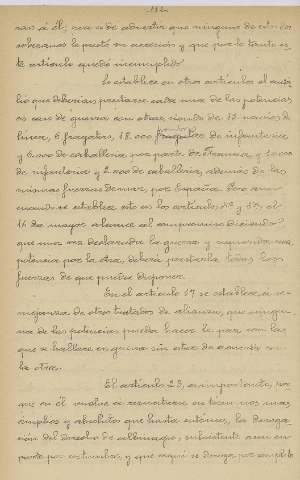 ran á él, pero es de advertir que ninguno de estos dos
soberanos le prestó su accesión y que por lo tanto es-
te artículo quedó incumplido.
Se establece en otros artículos el auxi-
lio que deberían prestarse cada una de las potencias
en caso de guerra con otras, siendo de 12 navíos de
línea, 6 fragatas, 18.000 hombres de infantería
y 6.000 de caballería por parte de Francia, y 10.000
de infantería y 2.000 de caballería, además de las
mismas fuerzas de mar, por España. Pero aun
cuando se establece esto en los artículos, el
16 da mayor alcance al compromiso diciendo
que una vez declarada la guerra y requerida una
potencia por la otra, deberá prestarla todas las
fuerzas de que pueda disponer.
En el artículo 17 se establece, á se-
mejanza de otros tratados de alianza, que ningu-
na de las potencias pueda hacer la paz con las
que se hallare en guerra sin estar de acuerdo con
la otra.
El artículo 23, es importante, por
que en él vuelve a consignarse en términos más
amplios y absolutos que hasta entonces, la deroga-
ción del derecho de albinagio, subsistente aun en
parte por costumbre, y que aquí se deroga por completo